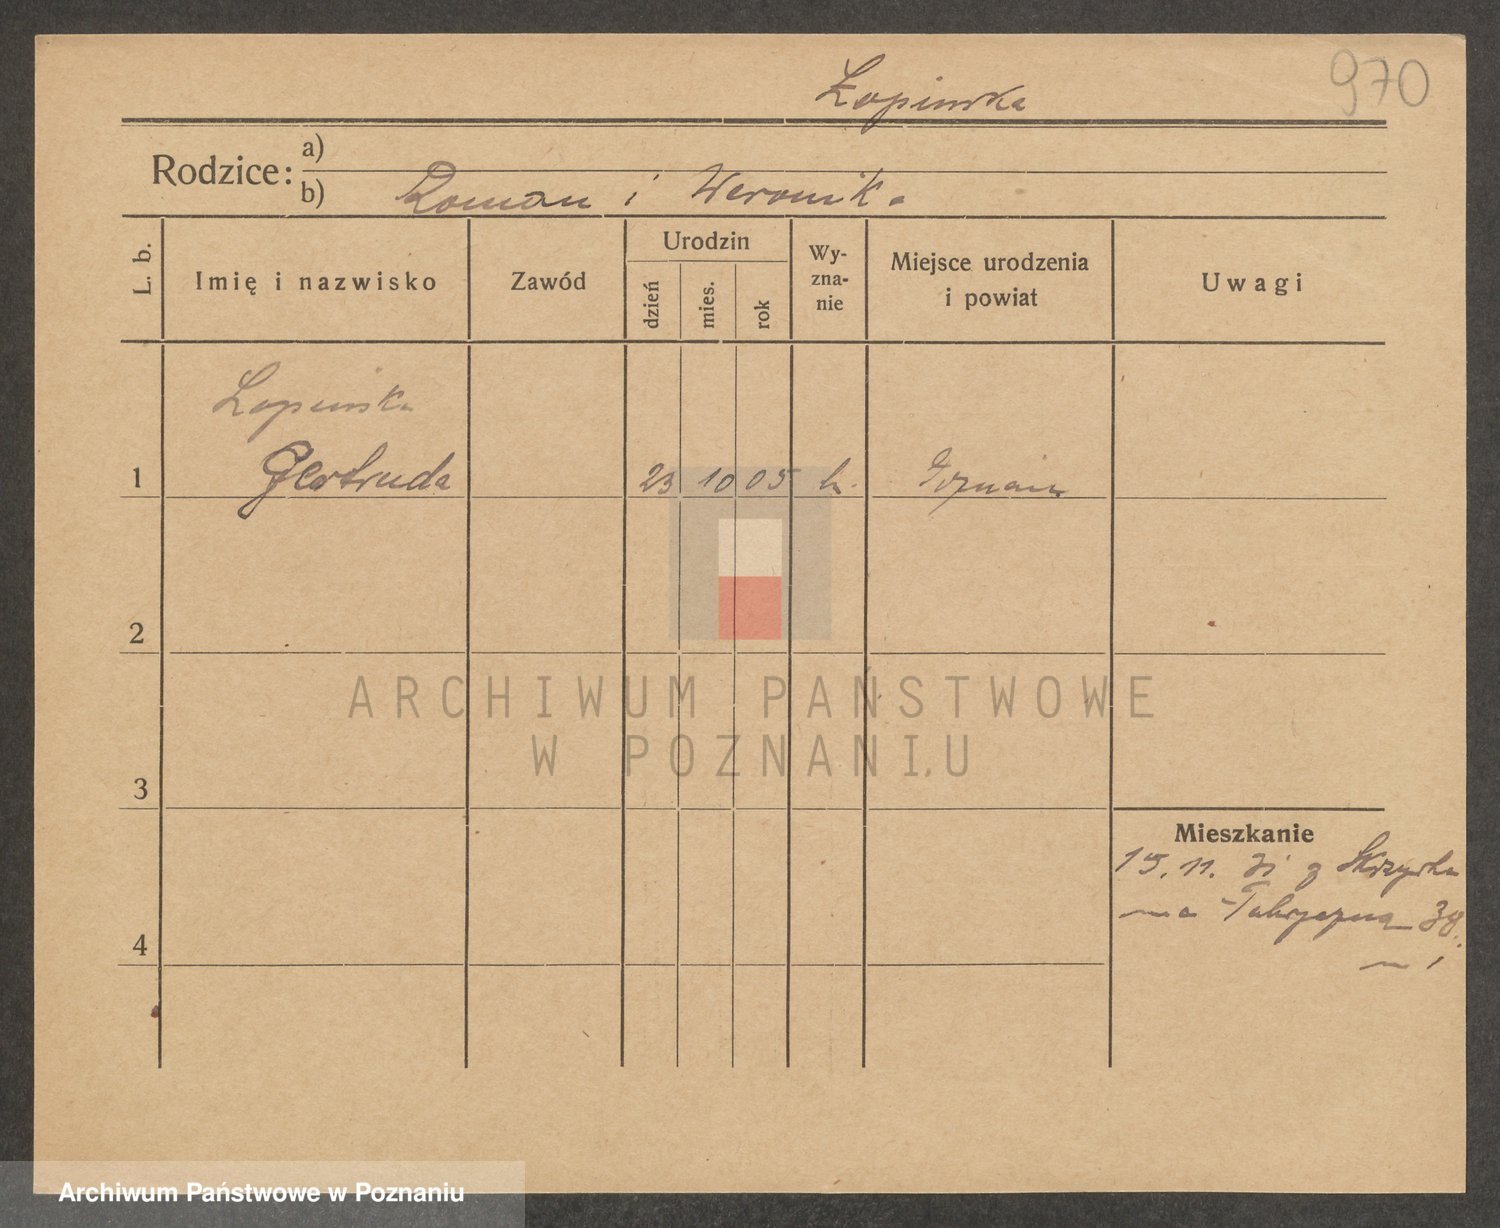 970
Łopińska
Rodzice: a)
b) Roman i Weronika
L. b.
Imię i nazwisko
Zawód
Urodzin
dzień
mies.
rok
Wy-
zna-
nie
Miejsce urodzenia
i powiat
Uwagi
Łopińska
1 Gertruda 23 10 05 k. Poznań
2
3
4
Mieszkanie
15. 11. 31 z
na Fabryczną 38.
m 1
ARCHIWUM PAŃSTWOWE
W POZNANIU
Archiwum Państwowe w Poznaniu